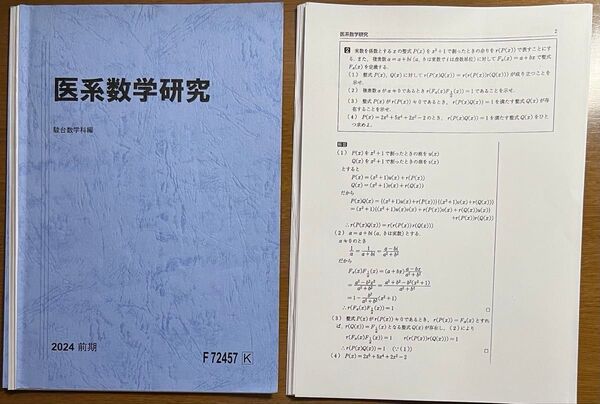 医系数学研究
駿台数学科編
2024 前期
F 72457 K
医系数学研究
2
2 実数を係数とする x の整式 P(x) を x²+1 で割ったときの余りを r(P(x)) で表すことにす
る. また, 複素数 α=a+bi (a, b は実数で i は虚数単位) に対して Fα(x)=a+bx で整式
Fα(x) を定義する.
(1) 整式 P(x), Q(x) に対して r(P(x)Q(x))=r(r(P(x))r(Q(x))) が成り立つことを
示せ.
(2) 複素数 α が α≠0 であるとき r(Fα(x)F1/α(x))=1 であることを示せ.
(3) 整式 P(x) が r(P(x))≠0 であるとき, r(P(x)Q(x))=1 を満たす整式 Q(x) が存
在することを示せ.
(4) P(x)=2x⁶+5x⁴+2x²−2 のとき, r(P(x)Q(x))=1 を満たす整式 Q(x) をひと
つ求めよ.
(1) P(x) を x²+1 で割ったときの商を u(x)
Q(x) を x²+1 で割ったときの商を v(x)
とすると
P(x)=(x²+1)u(x)+r(P(x))
Q(x)=(x²+1)v(x)+r(Q(x))
だから
P(x)Q(x)={(x²+1)u(x)+r(P(x))}{(x²+1)v(x)+r(Q(x))}
=(x²+1){(x²+1)u(x)v(x)+r(P(x))v(x)+r(Q(x))u(x)}
+r(P(x))r(Q(x))
∴ r(P(x)Q(x))=r(r(P(x))r(Q(x)))
(2) α=a+bi (a, b は実数) とする.
α≠0 のとき
1/α=1/(a+bi)=(a−bi)/(a²+b²)
だから
Fα(x)F1/α(x)=(a+bx)(a−bx)/(a²+b²)
=(a²−b²x²)/(a²+b²)=(a²+b²−b²(x²+1))/(a²+b²)
=1−b²/(a²+b²)(x²+1)
∴ r(Fα(x)F1/α(x))=1
(3) 整式 P(x) が r(P(x))≠0 であるとき, r(P(x))=Fα(x) とすれ
ば, r(Q(x))=F1/α(x) となる整式 Q(x) が存在し, (2) により
r(Fα(x)F1/α(x))=1 r(r(P(x))r(Q(x)))=1
∴ r(P(x)Q(x))=1 (∵(1))
(4) P(x)=2x⁶+5x⁴+2x²−2